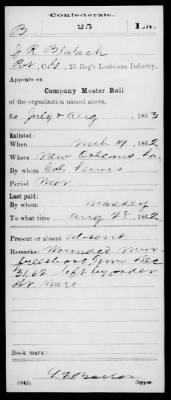 Confederate.
B 25 La.
J. R. Blalack
Pvt, Co. B, 25 Reg't Louisiana Infantry.
Appears on
Company Muster Roll
of the organization named above,
for July & Aug, 1863
Enlisted:
When Mch 19, 1862
Where New Orleans, La.
By whom Col. Lewis
Period War
Last paid:
By whom Massey
To what time Aug 28, 1862
Present or absent Absent
Remarks: Wounded Mur
freesboro, Tenn Dec
31, 62 left by order
Dr. Ware
Book mark:
(642) Copyist.